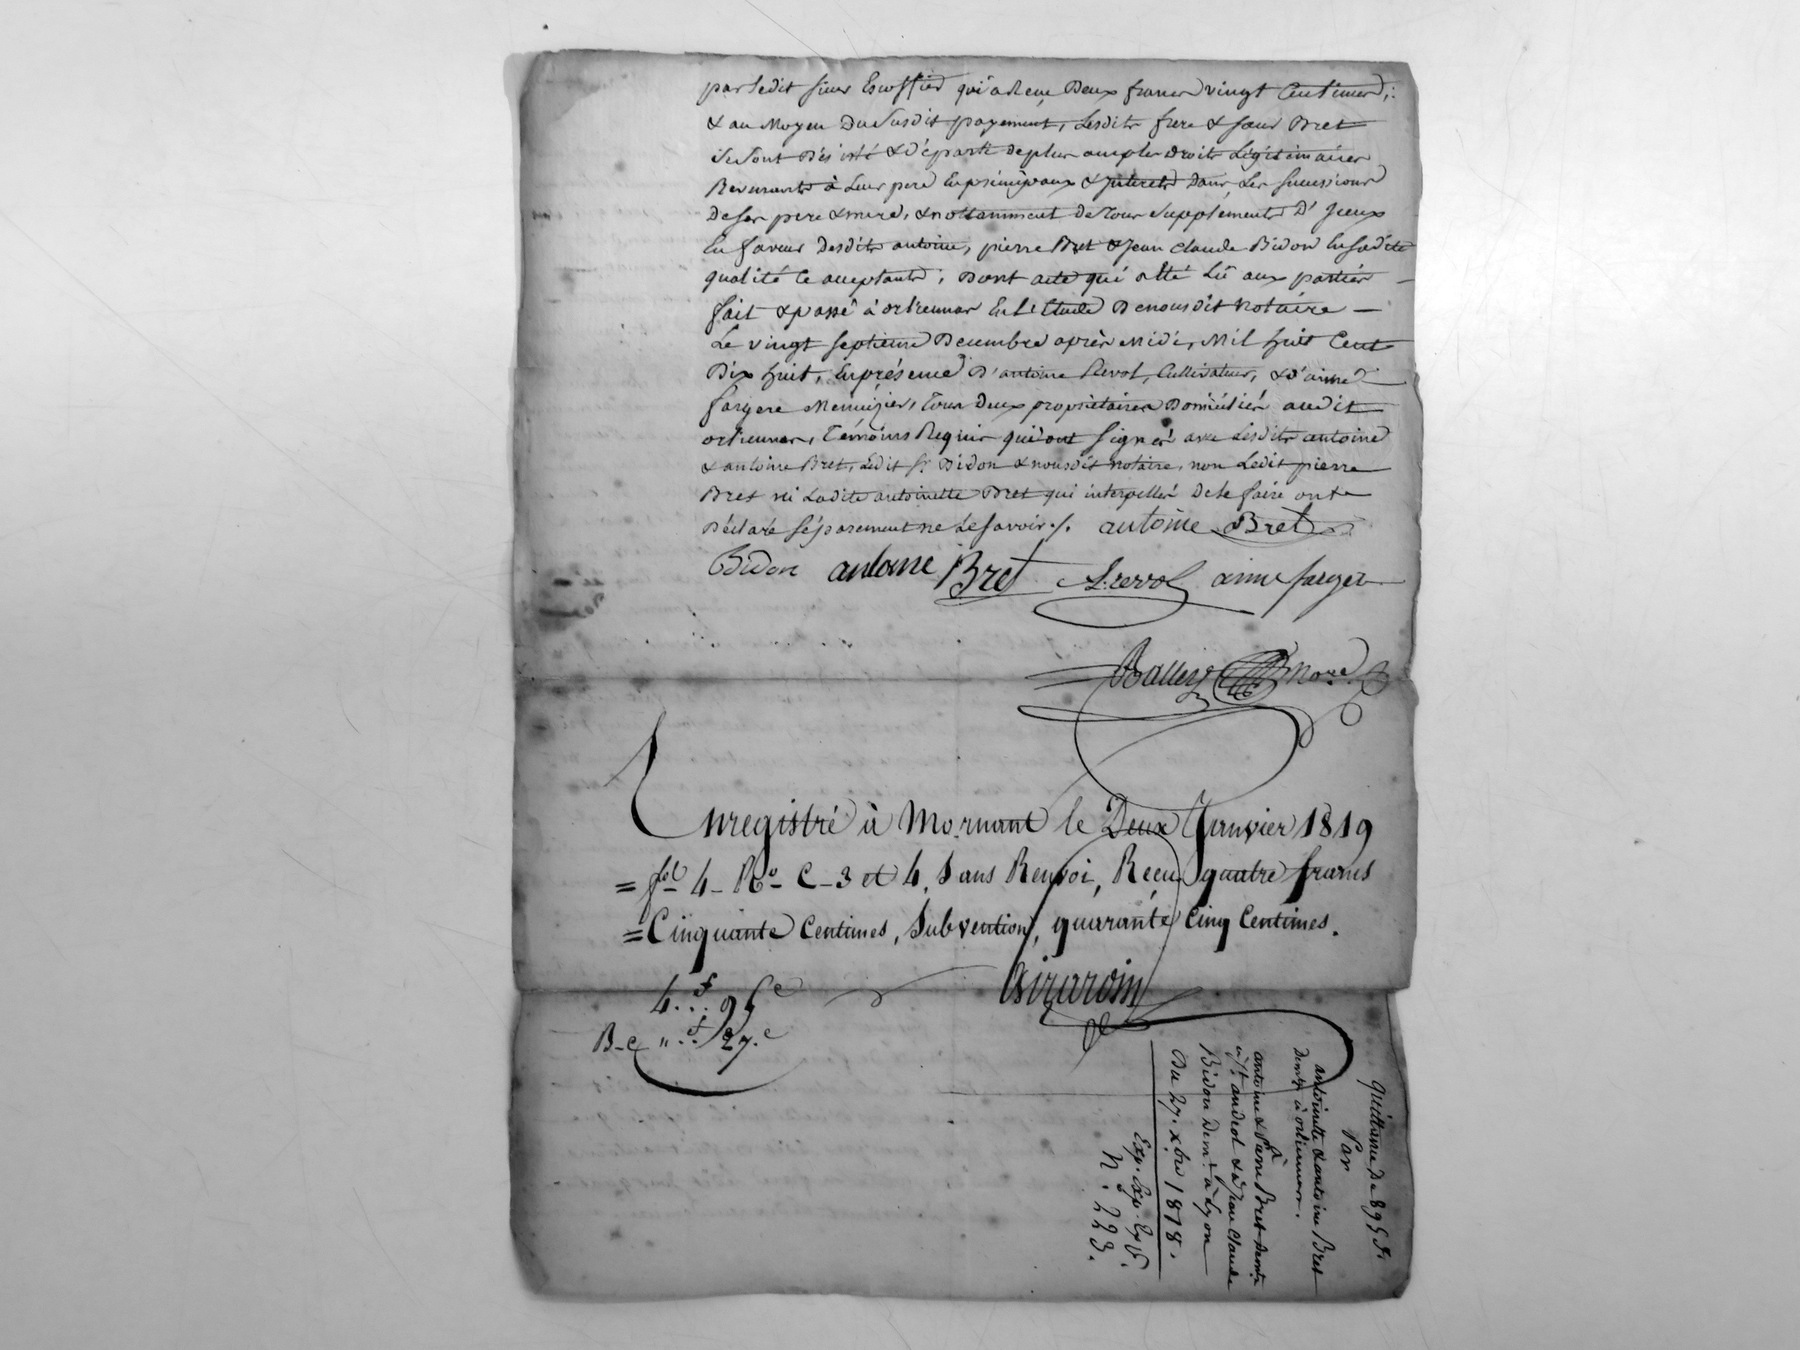 par ledit sieur Escoffier qui a Recu Deux francs vingt Centimes;
& au Moyen Du susdit payement, Lesdits frere & sœur Bret
se sont Désisté & Départi de plus amples Droits Légitimaires
Revenants à Leur pere En principaux & Interets dans Les successions
De ses pere & mere, & nottamment de Tous supplements D'Iceux
En faveur Desdits antoine, pierre Bret & Jean Claude Bidon En sadite
qualité Ce acceptants; Dont acte qui a Eté Lû aux parties
fait & passé à orliennas En L'Etude De nousdit Notaire —
Le vingt septieme Decembre après Midi, Mil huit Cent
Dix huit, En présence D'antoine Revol, Cultivateur, & D'aimé
fargere Menuizier, Tous Deux proprietaires Domiciliés audit
orliennas, Témoins Requis qui ont signés avec Lesdits antoine
& antoine Bret, Ledit Sr. Bidon & nousdit notaire, non Ledit pierre
Bret ni Ladite antoinette Bret qui interpellés De le faire ont
Déclaré séparement ne Le savoir ./. antoine Bret
Bidon antoine Bret A. revol aimé farger
Balley Nore.
Enregistré à Mornant le Deux Janvier 1819
= fol. 4 Ro. C. 3 et 4, Sans Renvoi, Reçu quatre francs
= Cinquante Centimes, Subvention, quarante Cinq Centimes.
Girardin
4.f.. 95c
B-C "..f 27.c
Quittance De 895 f.
Par
antoinette & antoine Bret
Demts. à orliennas.
à
antoine & Pierre Bret Demts.
à St. andéol & à Jean Claude
Bidon Demt. à Lyon
Du 27. xbre 1818.
Exp. Exp. Exp.
N.° 223.